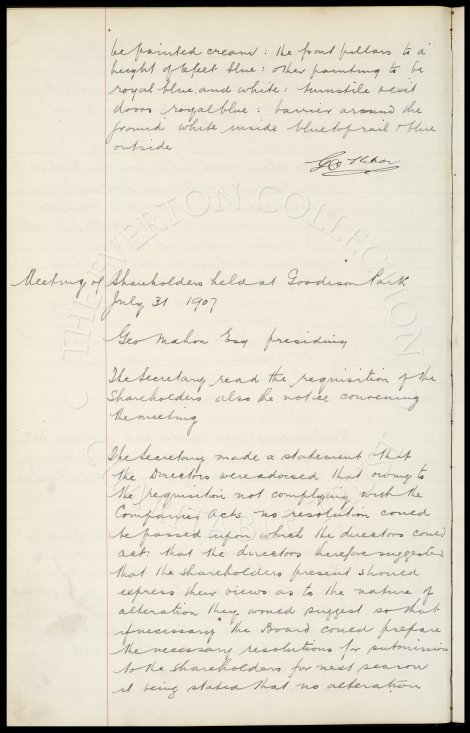 be painted cream: the front pillars to a
height of 6 feet blue: other painting to be
royal blue and white: turnstile & exit
doors royal blue: barrier around the
ground white inside blue top rail & blue
outside
Geo. Mahon
Meeting of Shareholders held at Goodison Park
July 31 1907
Geo Mahon Esq presiding
The Secretary read the requisition of the
Shareholders also he notice convening
the meeting
The Secretary made a statement that
the Directors were advised that owing to
the requisition not complying with the
Companies Acts no resolution could
be passed upon which the directors could
act: that the directors therefore suggested
that the shareholders present should
express their views as to the nature of
alteration they would suggest so that
if necessary the Board could prepare
the necessary resolutions for submission
to the shareholders for next season
it being stated that no alteration
© THE EVERTON COLLECTION